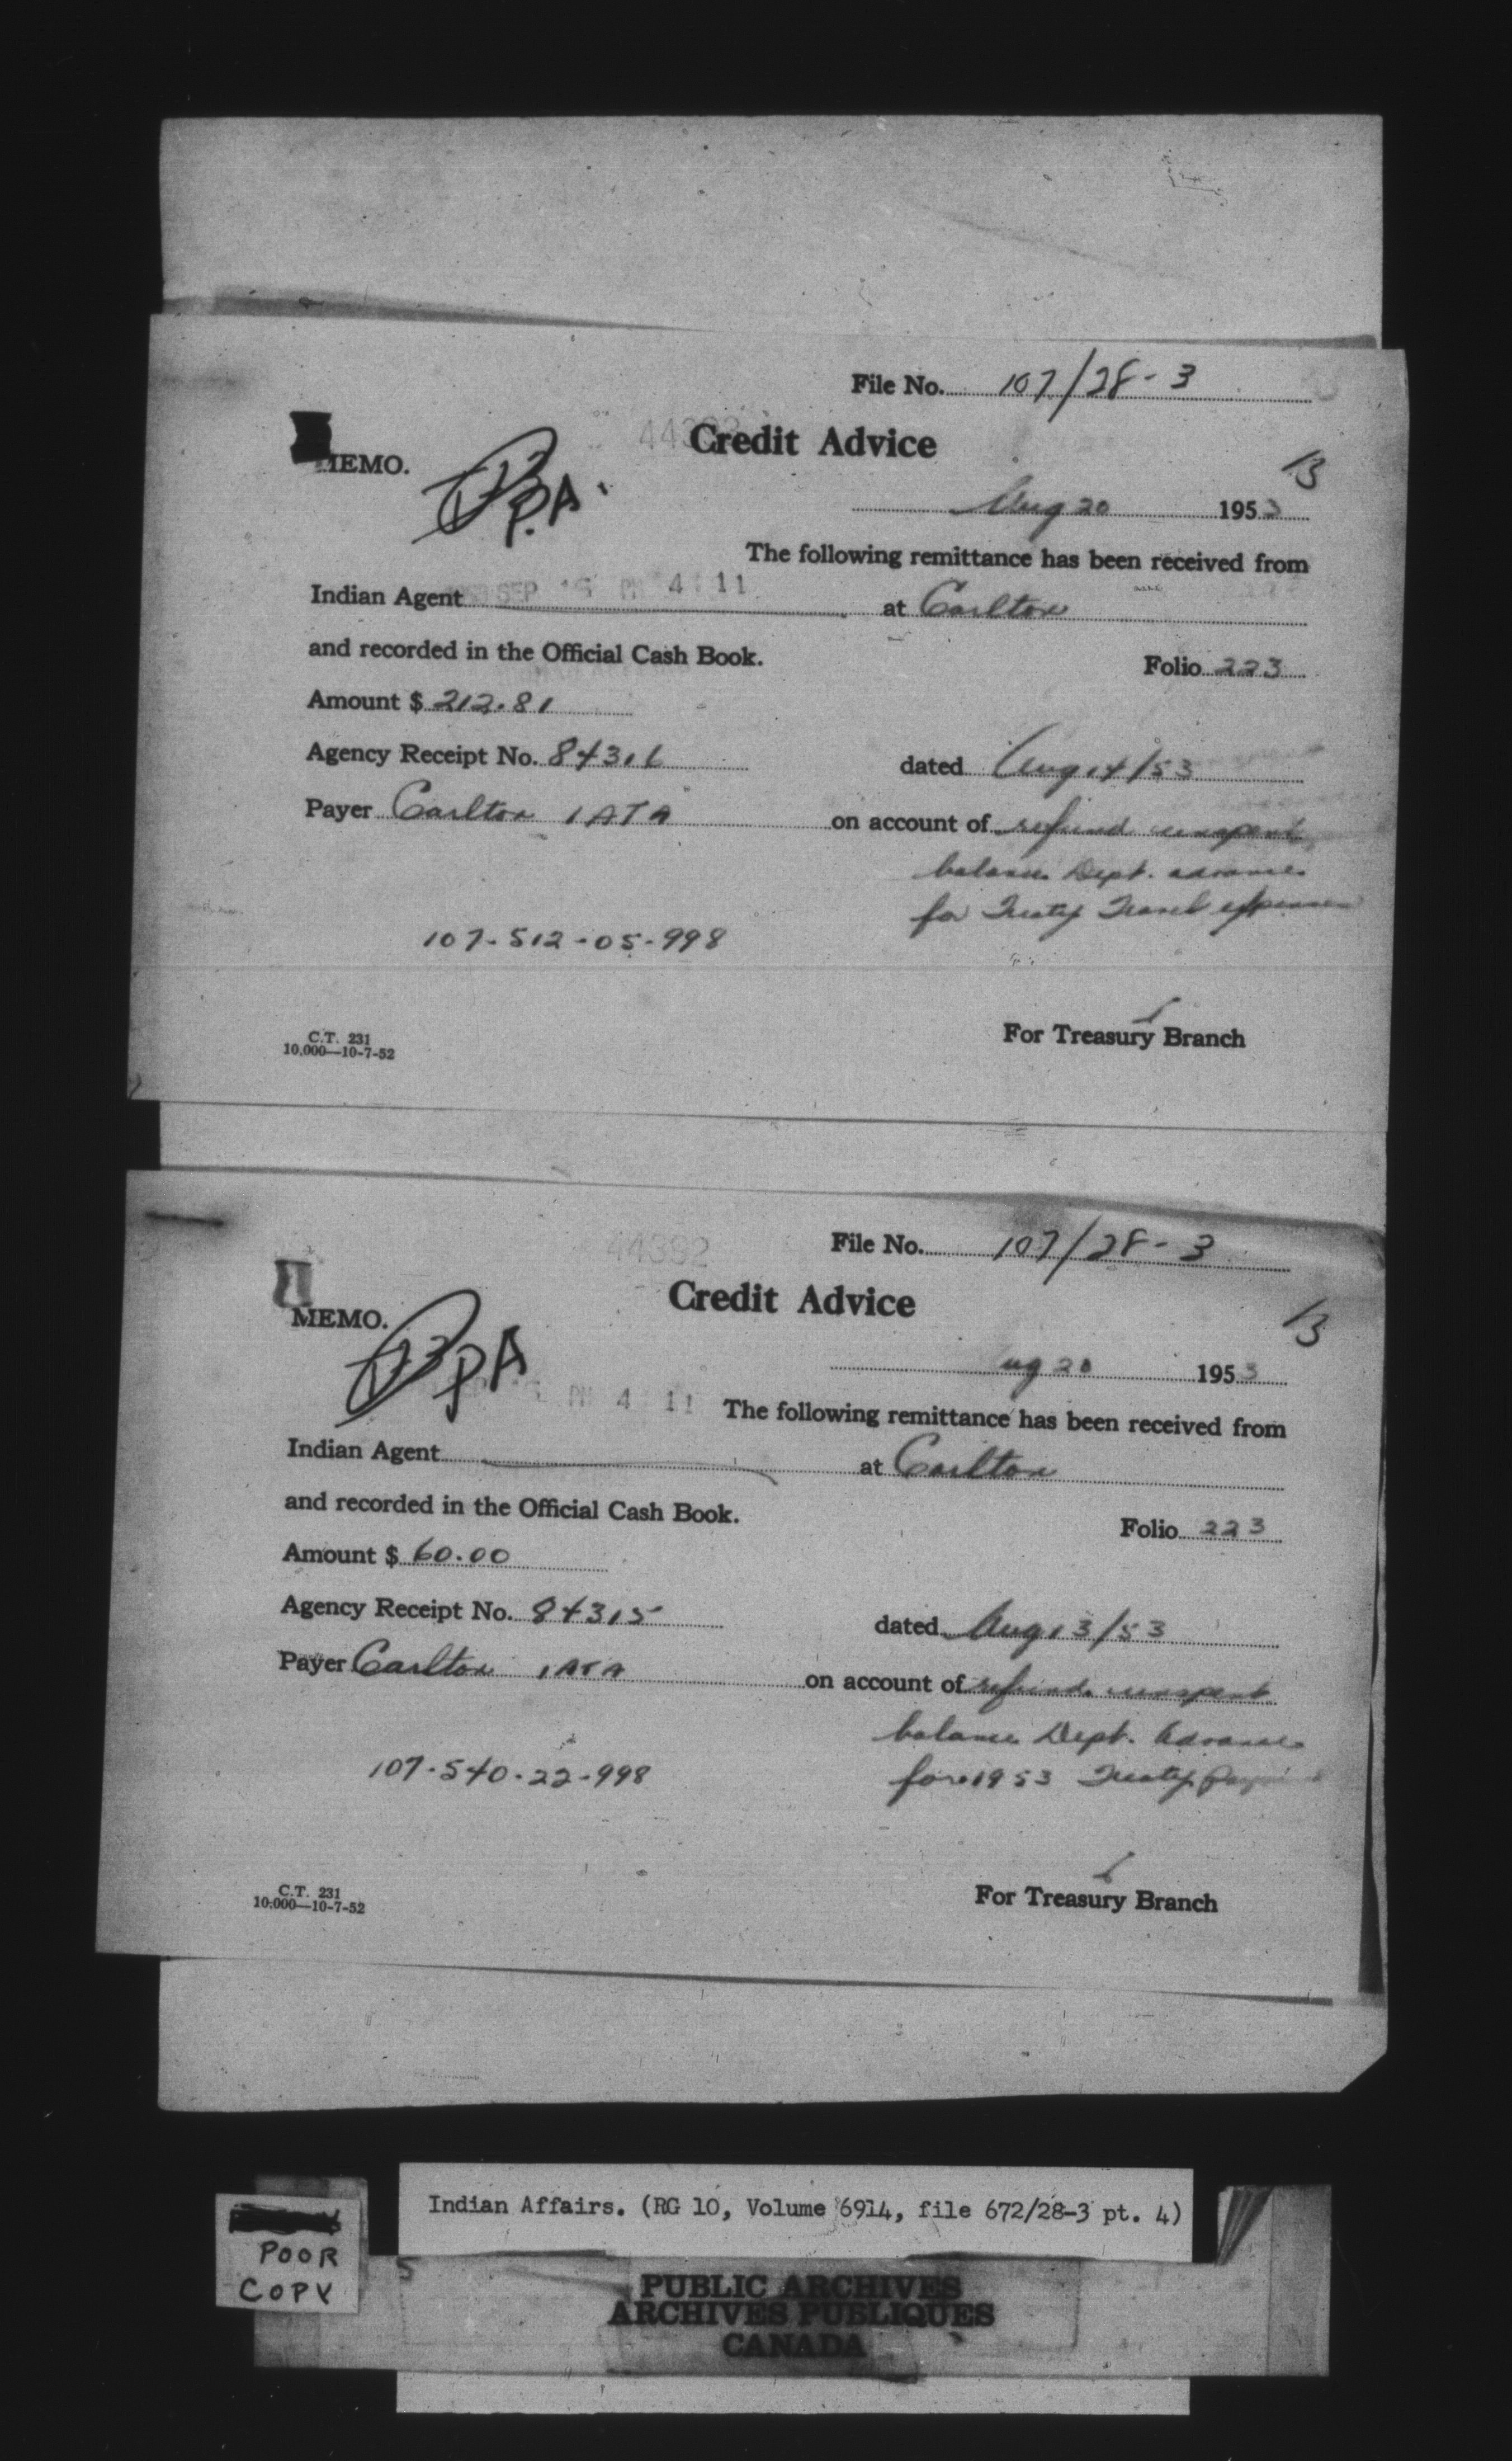 File No. 107/28-3
Credit Advice
MEMO.
P.A.
13
Aug 20 1953
The following remittance has been received from
SEP 15 PM 4 11
Indian Agent at Carlton
and recorded in the Official Cash Book. Folio 223
Amount $ 212.81
Agency Receipt No. 84316 dated Aug 14/53
Payer Carlton IATA on account of refund unspent
balance Dept. advance
for Treaty Travel expenses
107-512-05-998
For Treasury Branch
C.T. 231
10,000—10-7-52
44392
File No. 107/28-3
Credit Advice
MEMO.
PA
13
Aug 20 1953
PM 4 11 The following remittance has been received from
Indian Agent at Carlton
and recorded in the Official Cash Book. Folio 223
Amount $ 60.00
Agency Receipt No. 84315 dated Aug 13/53
Payer Carlton IATA on account of refund unspent
balance Dept. Advance
for 1953 Treaty
107-540-22-998
For Treasury Branch
C.T. 231
10,000—10-7-52
Indian Affairs. (RG 10, Volume 6914, file 672/28-3 pt. 4)
POOR
COPY
PUBLIC ARCHIVES
ARCHIVES PUBLIQUES
CANADA